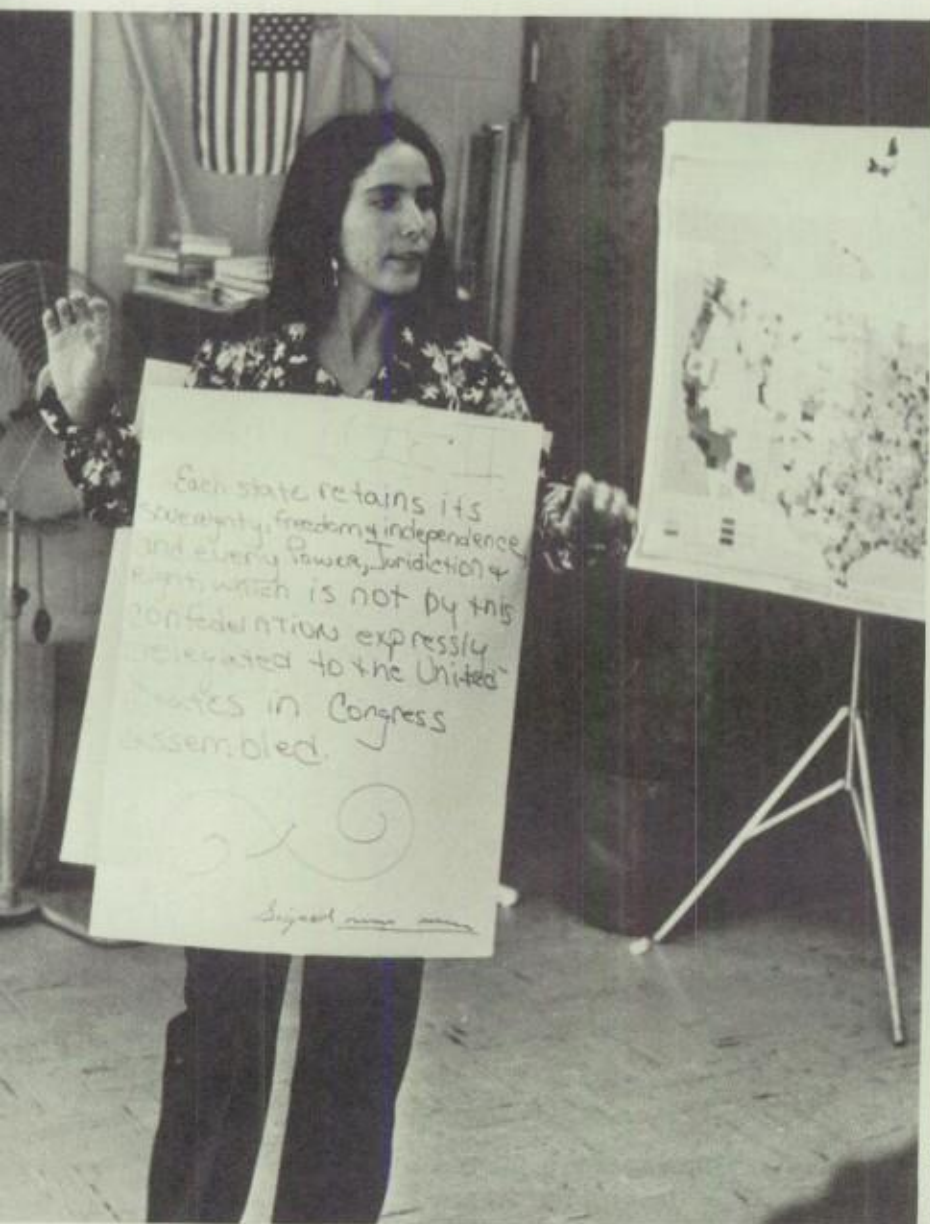 Each state retains its
sovereignty, freedom & independence,
and every Power, Juridiction &
right, which is not by this
confederation expressly
delegated to the United
States in Congress
assembled.
Signed